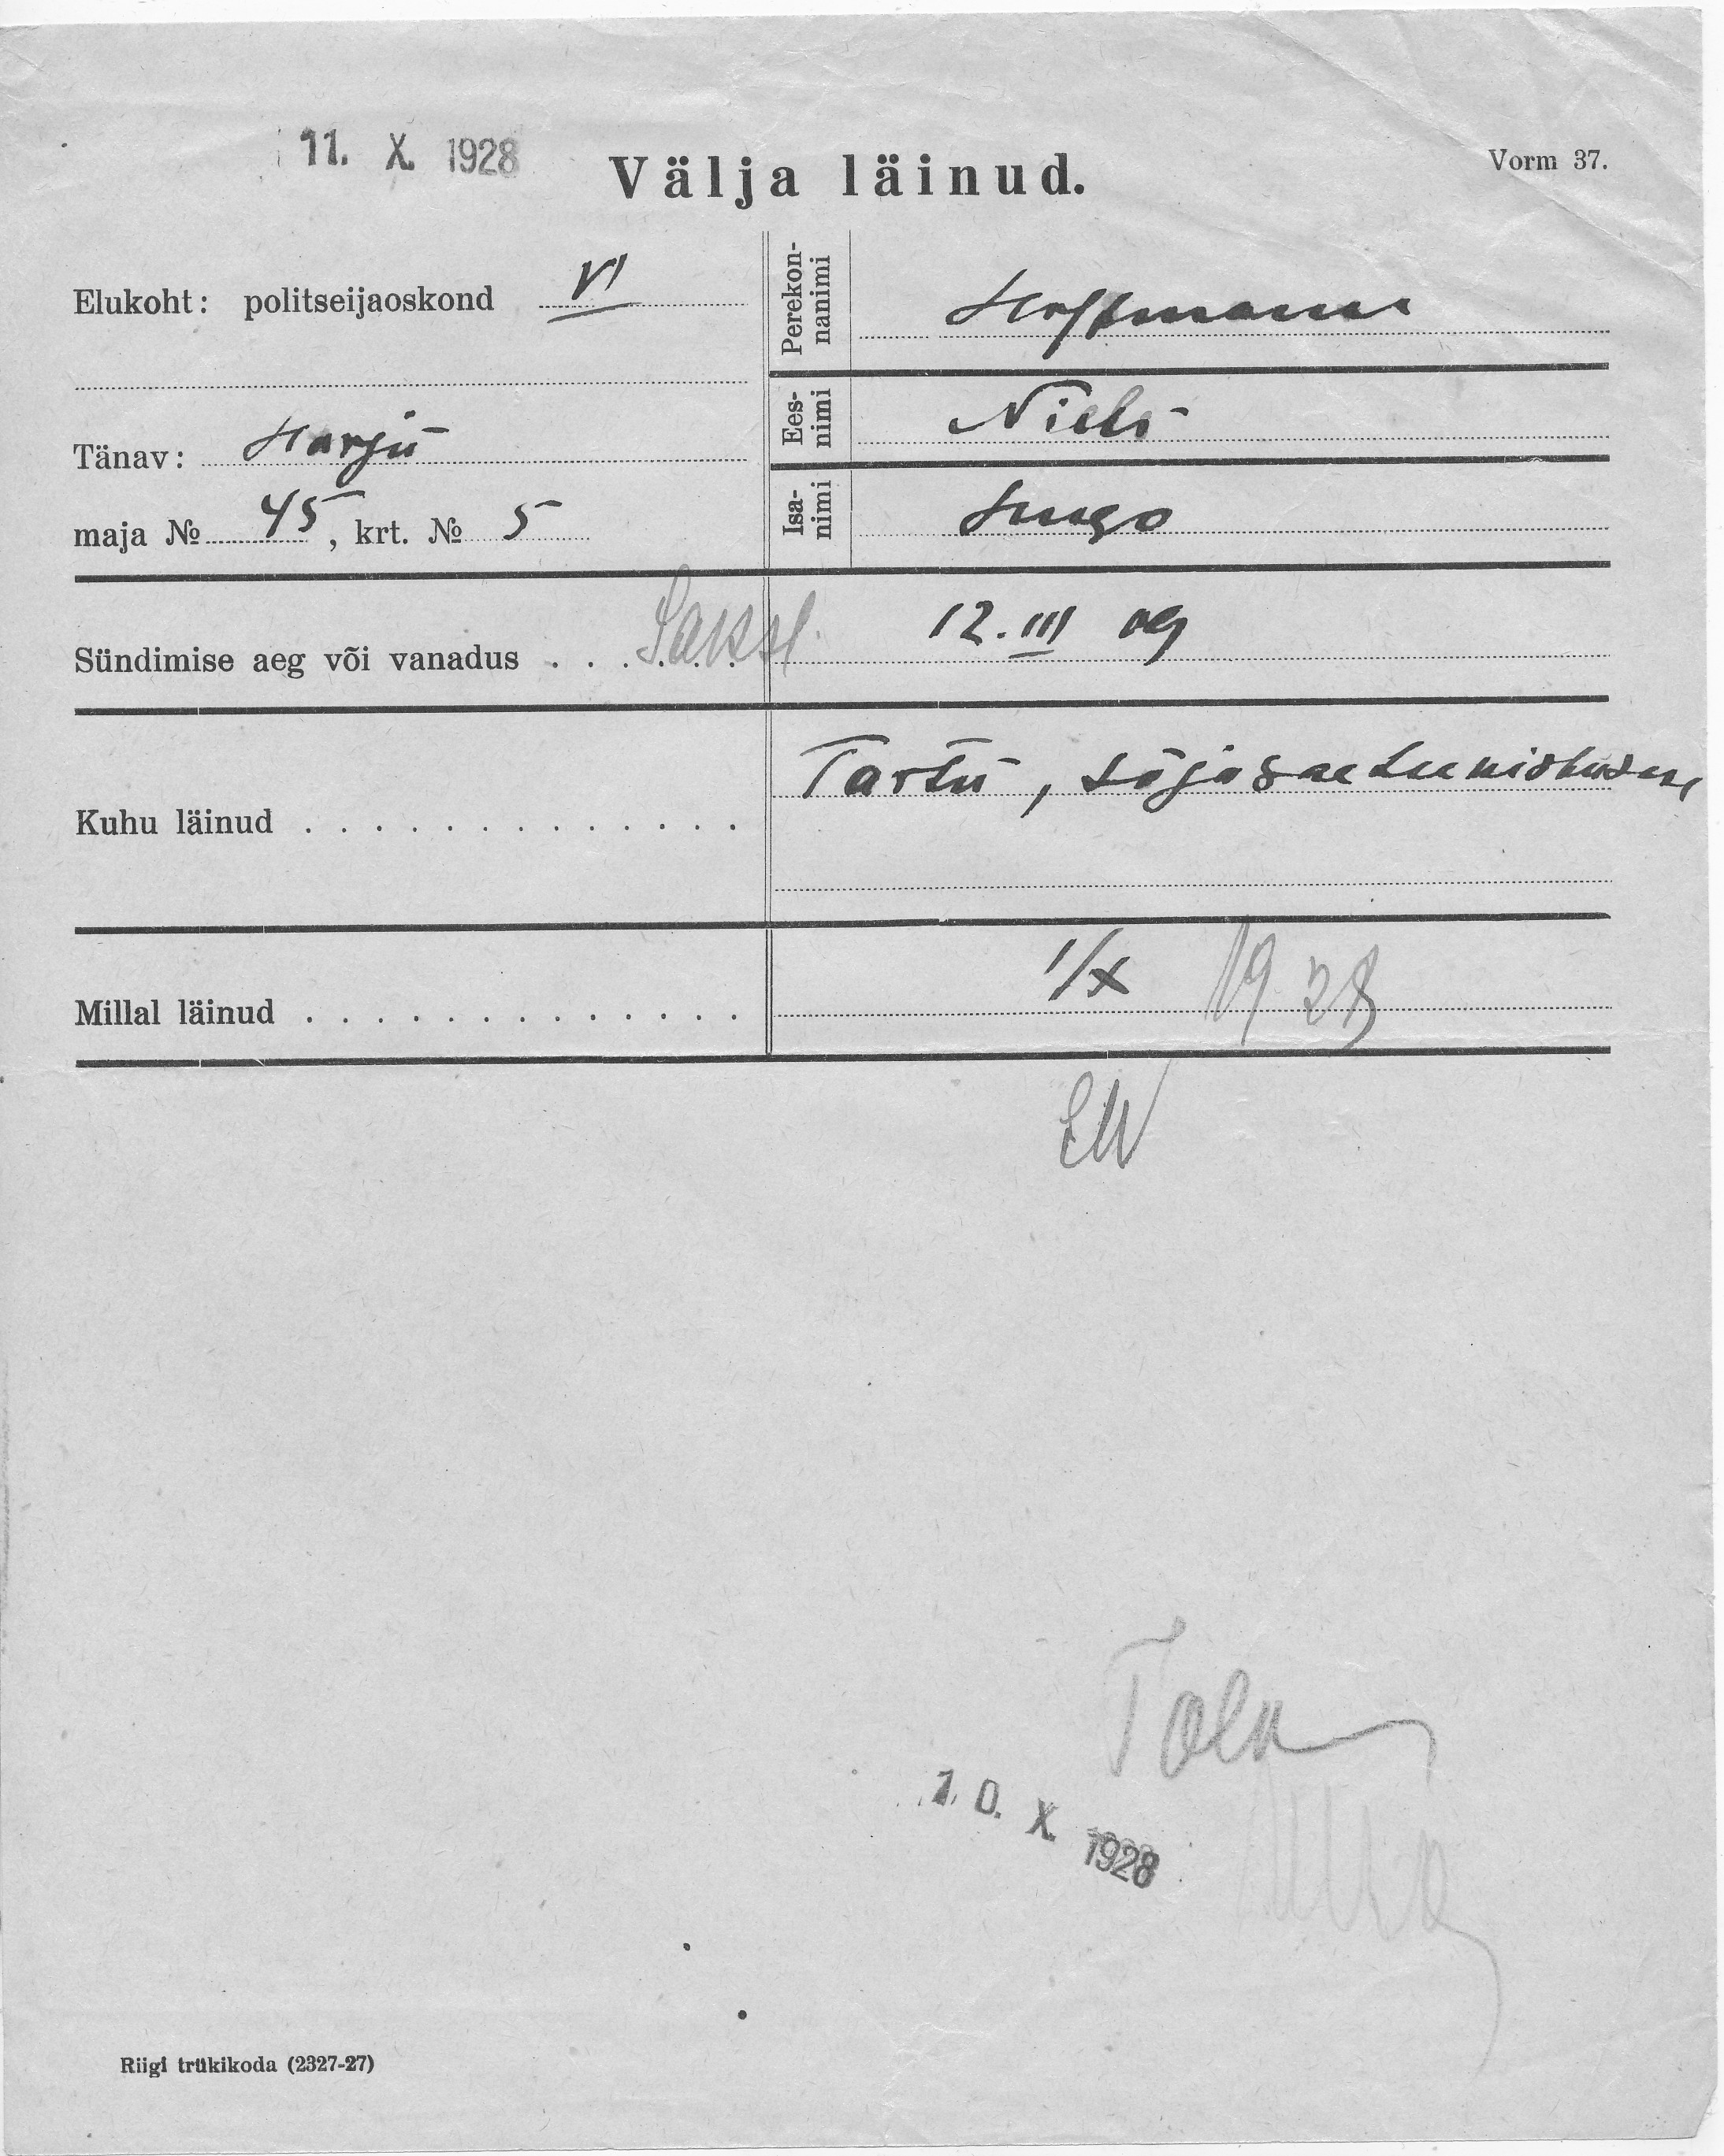 11. X. 1928
Välja läinud.
Vorm 37.
Elukoht: politseijaoskond VI
Tänav: Harju
maja № 45, krt. № 5
Perekon-
nanimi
Hoffmann
Ees-
nimi
Niels
Isa-
nimi
Hugo
Sündimise aeg või vanadus . . . . . . 12. III 09
Saksl.
Kuhu läinud . . . . . . . . . . . . . Tartu, sõjaväeteenistusse
Millal läinud . . . . . . . . . . . . . 1/X 1928
EW
10. X. 1928
Riigi trükikoda (2327-27)